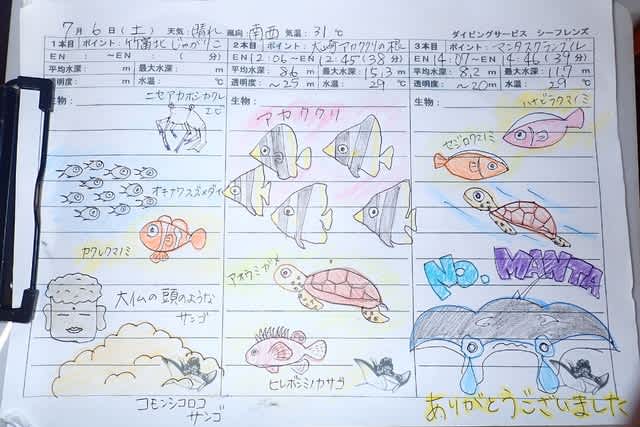 7月6日(土) 天気:晴れ 風向:南西 気温:31℃
ダイビングサービス シーフレンズ
1本目 ポイント:竹富北 じゃがりこ
EN : ~EN : ( 分)
平均水深: m 最大水深: m
透明度: m 水温: ℃
生物:
ニセアカホシカクレエビ
オキナワスズメダイ
カクレクマノミ
大仏の頭のような
サンゴ
コモンシコロ
サンゴ
2本目 ポイント:大崎アカククリの根
EN 12:06~EN 12:45(38分)
平均水深: 8.6m 最大水深: 15.3m
透明度: ~25m 水温: 29℃
生物:
アカククリ
アオウミガメ
ヒレボシミノカサゴ
3本目 ポイント:マンタスクランブル
EN 14:07~EN 14:46(39分)
平均水深: 8.2m 最大水深: 11.9m
透明度: ~20m 水温: 29℃
生物:
ハナビラクマノミ
セジロクマノミ
No. MANTA
ありがとうございました